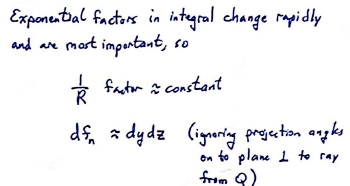 Exponential factors in integral change rapidly
and are most important, so
1/R factor ≈ constant
dfₙ ≈ dydz (ignoring projection angles
on to plane ⊥ to ray
from Q)